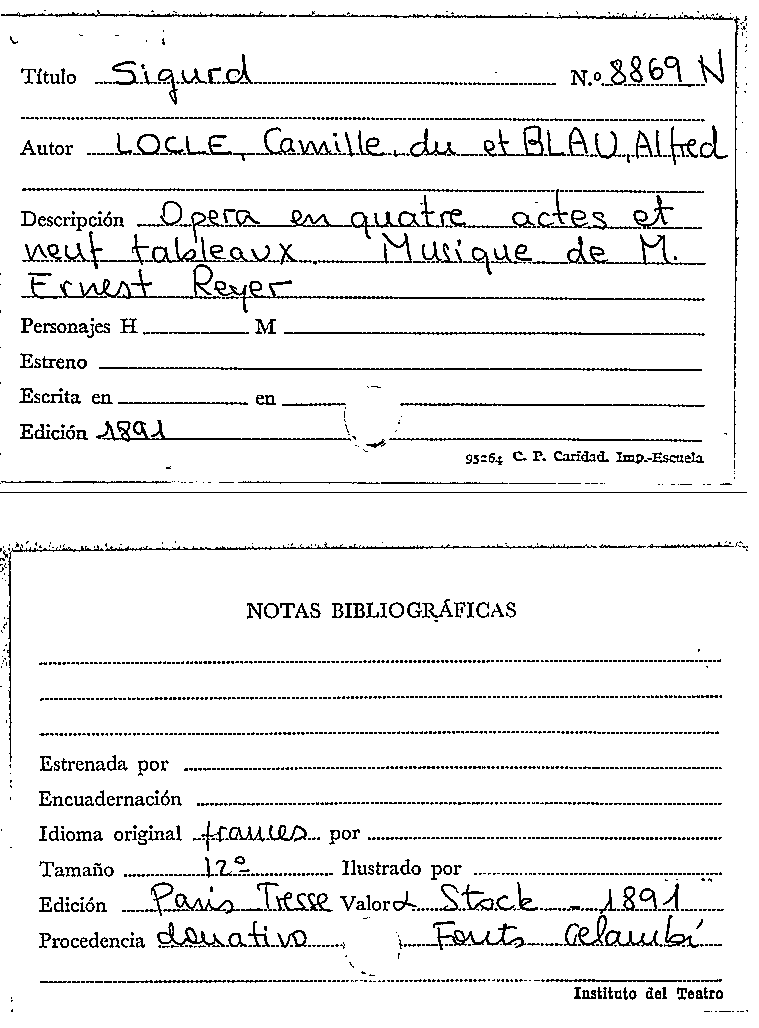 Título Sigurd N.º 8869 N
Autor LOCLE, Camille, du et BLAU, Alfred
Descripción Opera en quatre actes et
neuf tableaux. Musique de M.
Ernest Reyer
Personajes H M
Estreno
Escrita en en
Edición 1891
95264 C. P. Caridad. Imp.-Escuela
NOTAS BIBLIOGRÁFICAS
Estrenada por
Encuadernación
Idioma original frances por
Tamaño 12º Ilustrado por
Edición Paris Tresse Valor & Stock - 1891
Procedencia donativo Fonts
Instituto del Teatro